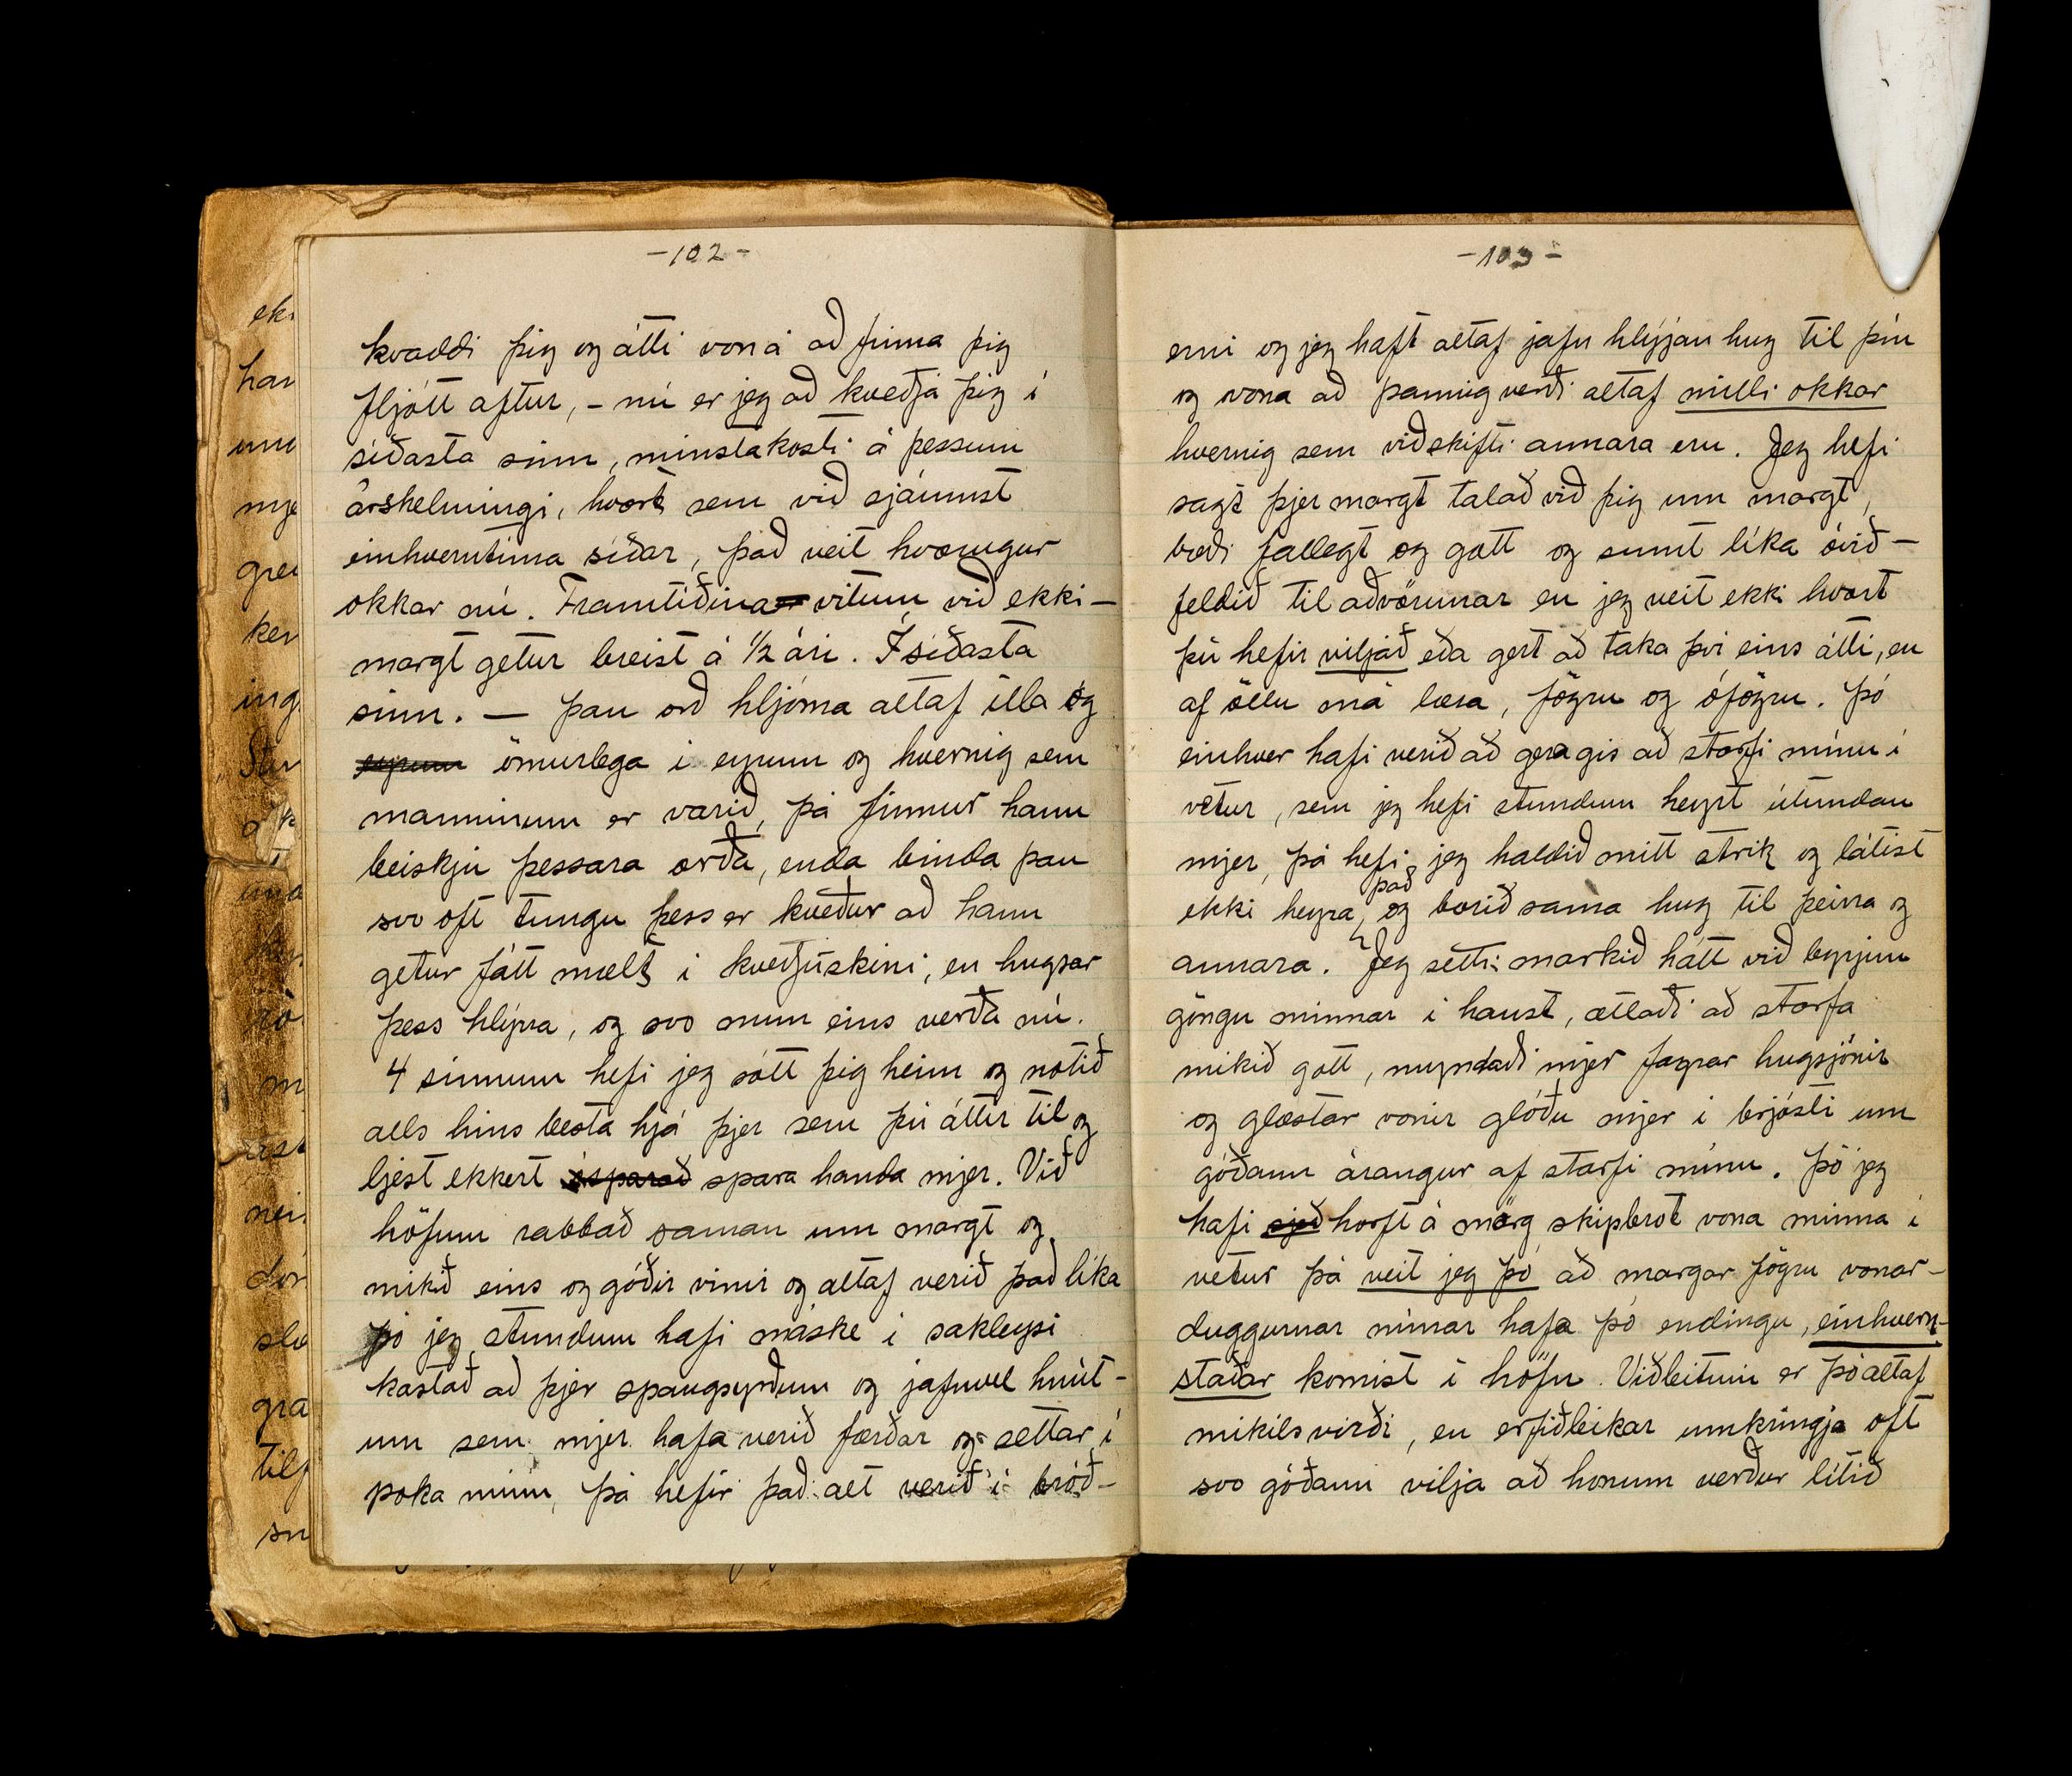 -102-
kvaddi þig og átti von á að finna þig
fljótt aftur, - nú er jeg að kveðja þig í
síðasta sinn, minstakosti á þessum
árshelmingi, hvort sem við sjáumst
einhverntíma síðar, það veit hvorugur
okkar nú. Framtíðina vitum við ekki -
margt getur breist á ½ ári. Í síðasta
sinn. — þau orð hljóma altaf illa og
eyrum ömurlega í eyrum og hvernig sem
manninum er varið, þá finnur hann
beiskju þessara orða, enda binda þau
svo oft tungu þess er kveður að hann
getur fátt mælt í kveðjuskini, en hugsar
þess hlýrra, og svo mun eins verða nú.
4 sinnum hefi jeg sótt þig heim og notið
alls hins besta hjá þjer sem þú áttir til og
ljest ekkert ósparað spara handa mjer. Við
höfum rabbað saman um margt og
mikið eins og góðir vinir og altaf verið það líka
þó jeg stundum hafi máske í sakleysi
kastað að þjer spaugsyrðum og jafnvel hnút-
um sem mjer hafa verið færðar og settar í
poka minn, þá hefir það alt verið í bróð-
-103-
erni og jeg haft altaf jafn hlýjan hug til þín
og vona að þannig verði altaf milli okkar
hvernig sem viðskifti annara eru. Jeg hefi
sagt þjer margt talað við þig um margt,
bæði fallegt og gott og sumt líka óvið-
feldið til aðvörunar en jeg veit ekki hvort
þú hefir viljað eða gert að taka því eins átti, en
af öllu má læra, fögru og ófögru. Þó
einhver hafi verið að gera gis að starfi mínu í
vetur, sem jeg hefi stundum heyrt útundan
mjer, þá hefi jeg haldið mitt strik og látist
ekki heyra það, og borið sama hug til þeirra og
annara. Jeg setti markið hátt við byrjun
göngu minnar í haust, ætlaði að starfa
mikið gott, myndaði mjer fagrar hugsjónir
og glæstar vonir glóðu mjer í brjósti um
góðann árangur af starfi mínu. Þó jeg
hafi sjeð horft á mörg skipbrot vona minna í
vetur þá veit jeg þó að margar fögru vonar-
duggurnar mínar hafa þó endingu, einhvern-
staðar komist í höfn. Viðleitnin er þó altaf
mikilsvirði, en erfiðleikar umkringja oft
svo góðann vilja að honum verður lítið